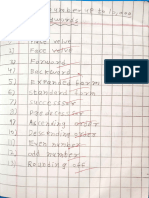 number up to 1,000
1) Place value
2) Face value
3) Forward
4) Backward
5) Expanded form
6) Standard form
7) Successor
8) Predecessor
9) Ascending order
10) Descending order
11) Even number
12) odd number
13) Rounding off